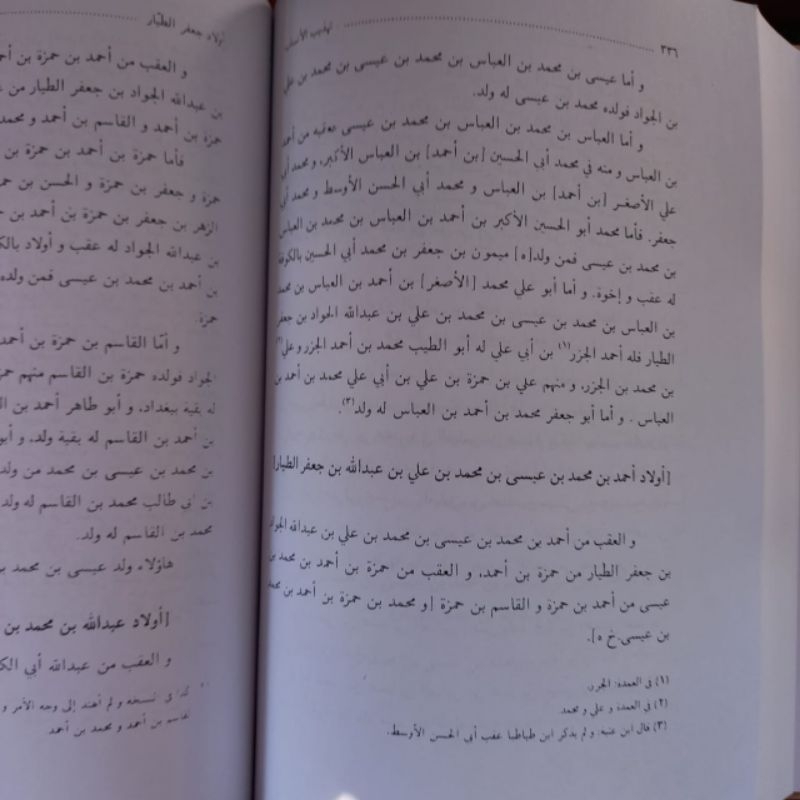 ٣٣٦ تهذيب الأنساب
و أما عيسى بن محمد بن العباس بن محمد بن عيسى بن محمد بن علي
بن الجواد فولده محمد بن عيسى له ولد.
و أما العباس بن محمد بن العباس بن محمد بن عيسى فعقبه من أحمد
بن العباس و منه في محمد أبي الحسين [بن أحمد] بن العباس الأكبر، و محمد أبي
علي الأصغر [بن أحمد] بن العباس و محمد أبي الحسن الأوسط و محمد أبي
جعفر. فأما محمد أبو الحسين الأكبر بن أحمد بن العباس بن محمد بن العباس
بن محمد بن عيسى فمن ولد[ه] ميمون بن جعفر بن محمد أبي الحسين بالكوفة
له عقب و إخوة. و أما أبو علي محمد [الأصغر] بن أحمد بن العباس بن محمد
بن العباس بن محمد بن عيسى بن محمد بن علي بن عبدالله الجواد بن جعفر
الطيار فله أحمد الجزر(١) بن أبي علي له أبو الطيب محمد بن أحمد الجزر و علي(٢)
بن محمد بن الجزر، و منهم علي بن حمزة بن علي بن أبي علي محمد بن أحمد بن
العباس. و أما أبو جعفر محمد بن أحمد بن العباس له ولد(٣).
[أولاد أحمد بن محمد بن عيسى بن محمد بن علي بن عبدالله بن جعفر الطيار]
و العقب من أحمد بن محمد بن عيسى بن محمد بن علي بن عبدالله الجواد
بن جعفر الطيار من حمزة بن أحمد، و العقب من حمزة بن أحمد بن محمد بن
عيسى من أحمد بن حمزة و القاسم بن حمزة [و محمد بن حمزة بن أحمد بن محمد
بن عيسى.خ ه].
(١) في العمدة: الجرر.
(٢) في العمدة و علي و محمد
(٣) قال ابن عنبة: و لم يذكر ابن طباطبا عقب أبي الحسن الأوسط.
أولاد جعفر الطيّار
و العقب من أحمد بن حمزة بن
بن عبدالله الجواد بن جعفر الطيار من
حمزة بن أحمد و القاسم بن أحمد و محمد
فأما حمزة بن أحمد بن حمزة بن
حمزة و جعفر بن حمزة و الحسن بن
الزهر بن جعفر بن حمزة بن أحمد بن
بن عبدالله الجواد له عقب و أولاد
بن أحمد بن محمد بن عيسى فمن ولده
حمزة.
و أمّا القاسم بن حمزة بن أحمد
الجواد فولده حمزة بن القاسم منهم
له بقية ببغداد، و أبو طاهر أحمد بن
بن أحمد بن القاسم له بقية ولد، و
بن محمد بن عيسى بن محمد من ولد
بن أبي طالب محمد بن القاسم له ولد
محمد بن القاسم له ولد.
هاؤلاء ولد عيسى بن محمد
[أولاد عبدالله بن محمد بن
و العقب من عبدالله أبي
كذا في النسخة و لم أهتد إلى وجه الأمر و
القاسم بن أحمد و محمد بن أحمد